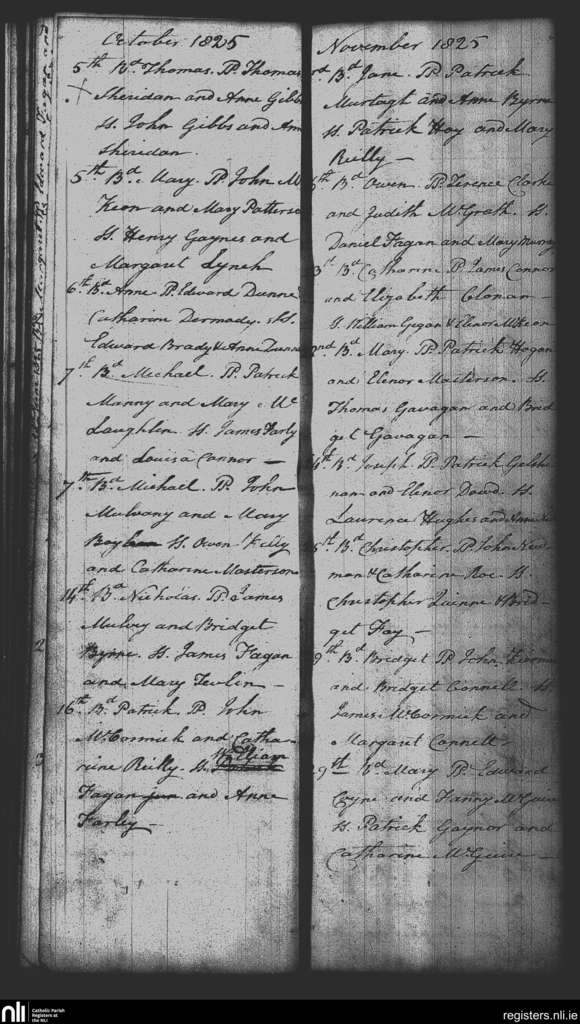 October 1825
5th Bd Thomas. PP. Thomas
Sheridan and Anne Gibbs
SS. John Gibbs and Ann
Sheridan.
5th Bd. Mary. PP. John M
Keon and Mary Patterson
SS. Henry Gaynes and
Margaret Lynch
6th Bd. Anne PP. Edward Dunne
Catharine Dermady. SS.
Edward Brady & Anne Dunne
7th Bd Michael. PP. Patrick
Manny and Mary Mc
Laughlin SS. James Farly
and Louisa Connor —
7th Bd Michael. PP. John
Mulvany and Mary
SS. Owen Kelly
and Catharine Masterson
14th Bd Nicholas. PP. James
Mulvey and Bridget
Byrne. SS. James Fagan
and Mary Tevlin —
16th Bd Patrick. P. John
McCormick and Catha-
rine Reilly. SS. William
Fagan jun and Anne
Farley —
November 1825
rd Bd Jane. PP. Patrick
Murtagh and Anne Byrne
SS. Patrick Hoy and Mary
Reilly —
th Bd Owen. PP. Terence Clarke
and Judith McGrath. SS.
Daniel Fagan and Mary Murray
st Bd Catharine P. James Connor
and Elizabeth Clonan
William Gegan & Elenor McKeon
nd Bd. Mary. PP. Patrick Hogan
and Elenor Masterson. SS.
Thomas Gavagan and Brid
get Gavagan —
th Bd Joseph. PP. Patrick
nan and Elenor Dowd. SS.
Laurence Hughes and Anne
th Bd Christopher. P. John New
man & Catharine Roe. SS.
Christopher Quinne & Brid-
get Fay —
th Bd Bridget PP. John
and Bridget Connell. SS.
James McCormick and
Margaret Connell.
9th Bd Mary PP. Edward
Coyne and Fanny McGuire
SS. Patrick Gaynor and
Catharine McGuire —
nli
Catholic Parish
Registers at
the NLI
registers.nli.ie